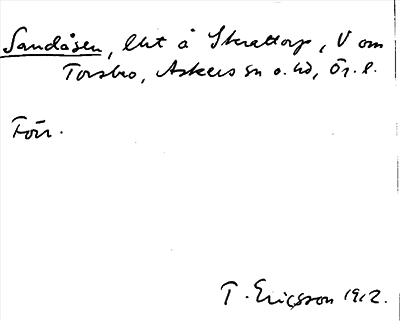 Sandåsen, lht å Skrattorp, V om
Torsbro, Askers sn o. hd, Ör. l.
Förr.
T. Ericsson 1912.